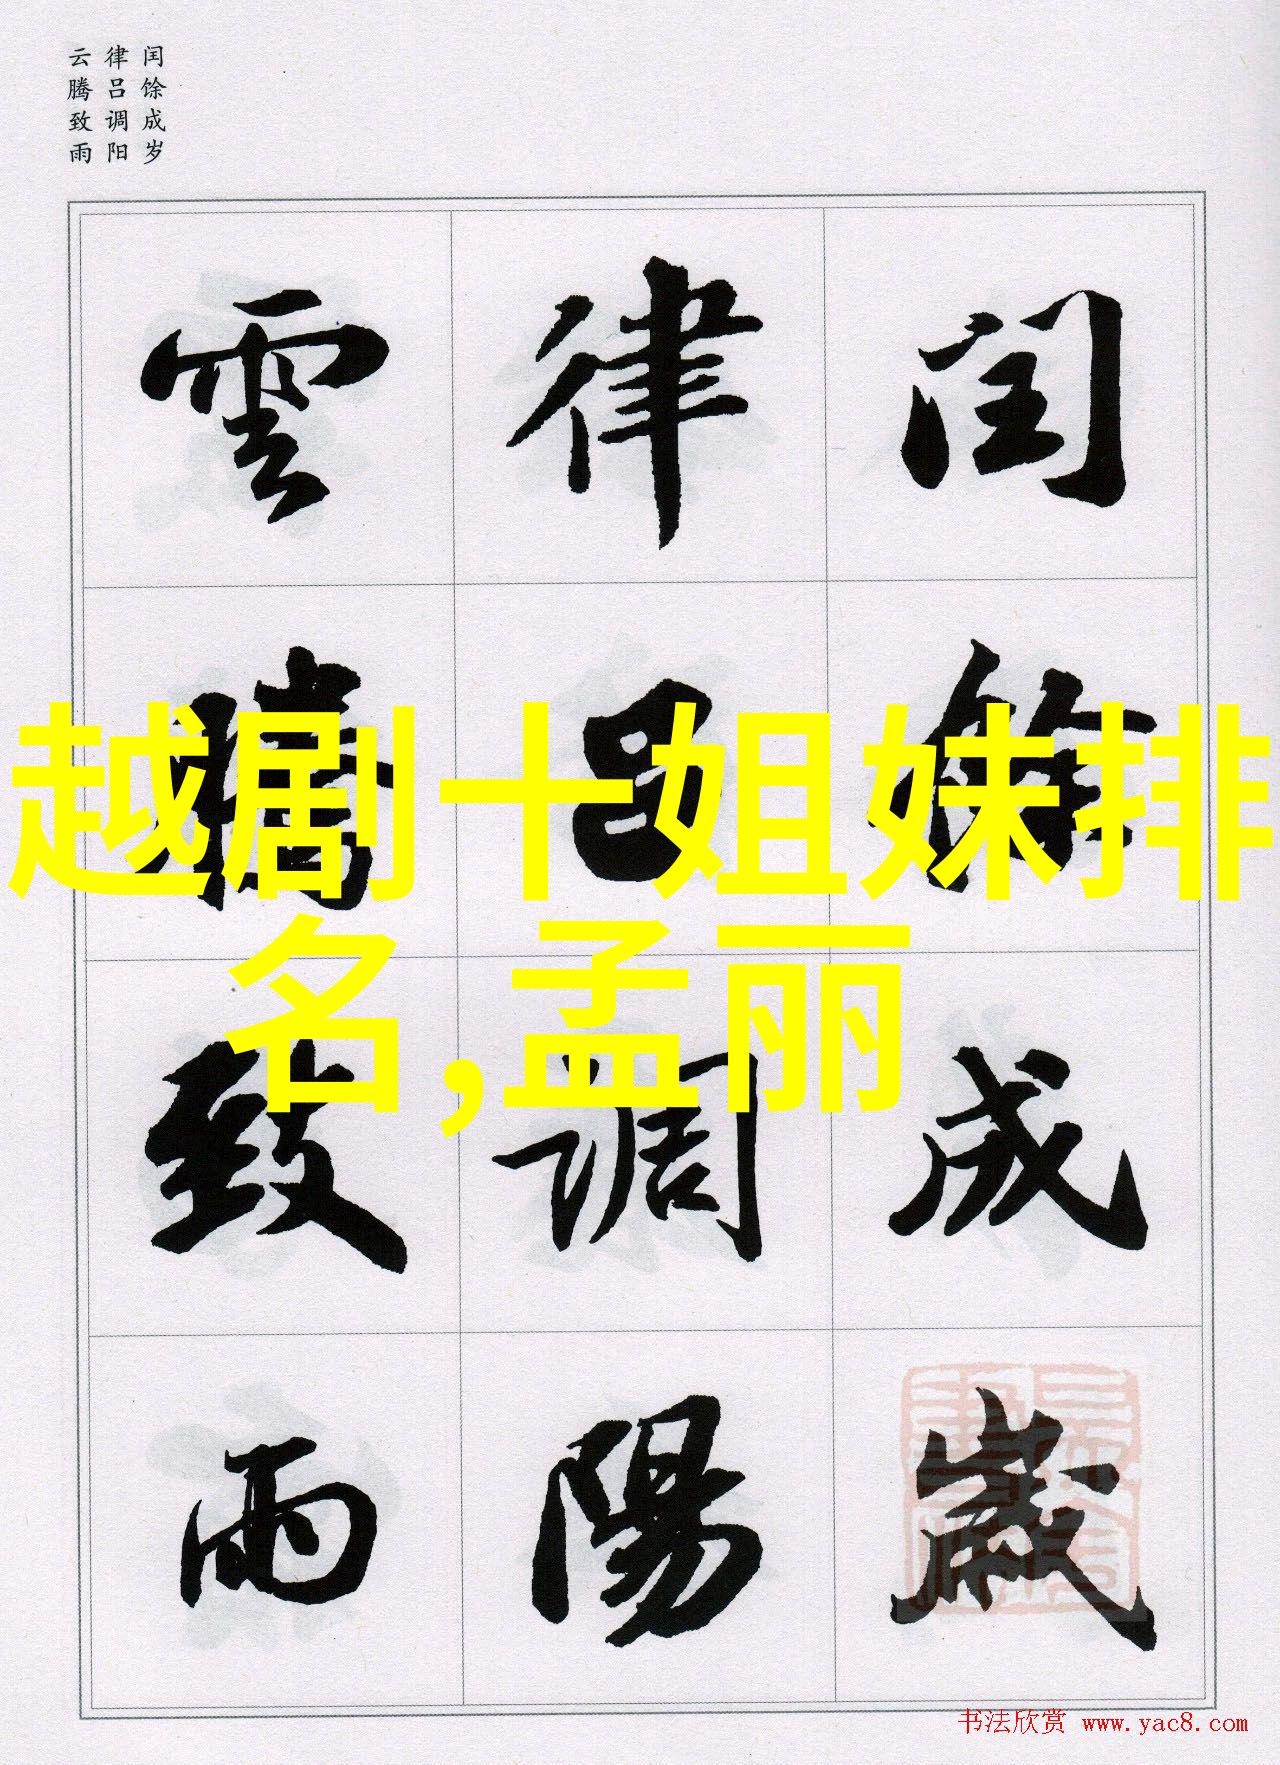 闰馀成岁
律吕调阳
云腾致雨
閏餘成歲
律呂調陽
雲騰致雨
越剧十姐妹排
名,孟丽
书法欣赏 www.yac8.com